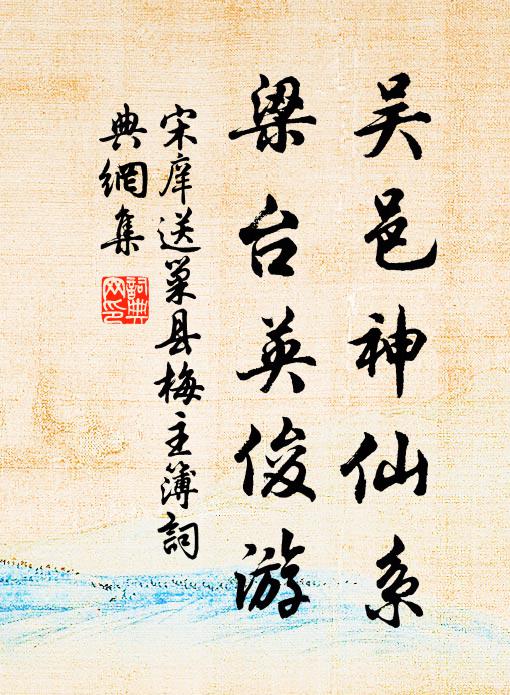 吴邑神仙系
梁台英俊游
宋庠送巢县梅主簿詞
典網集
詞典
网印